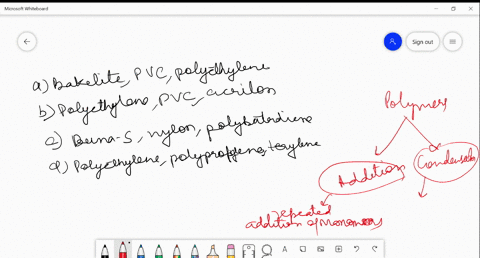 Microsoft Whiteboard
Sign out
a) Bakelite, PVC, polyethylene
b) Polyethylene, PVC, acrilon
c) Buna-S, nylon, polybutadiene
d) Polyethylene, polypropene, terylene
Polymers
Addition
Condensation
repeated
addition of Monomers